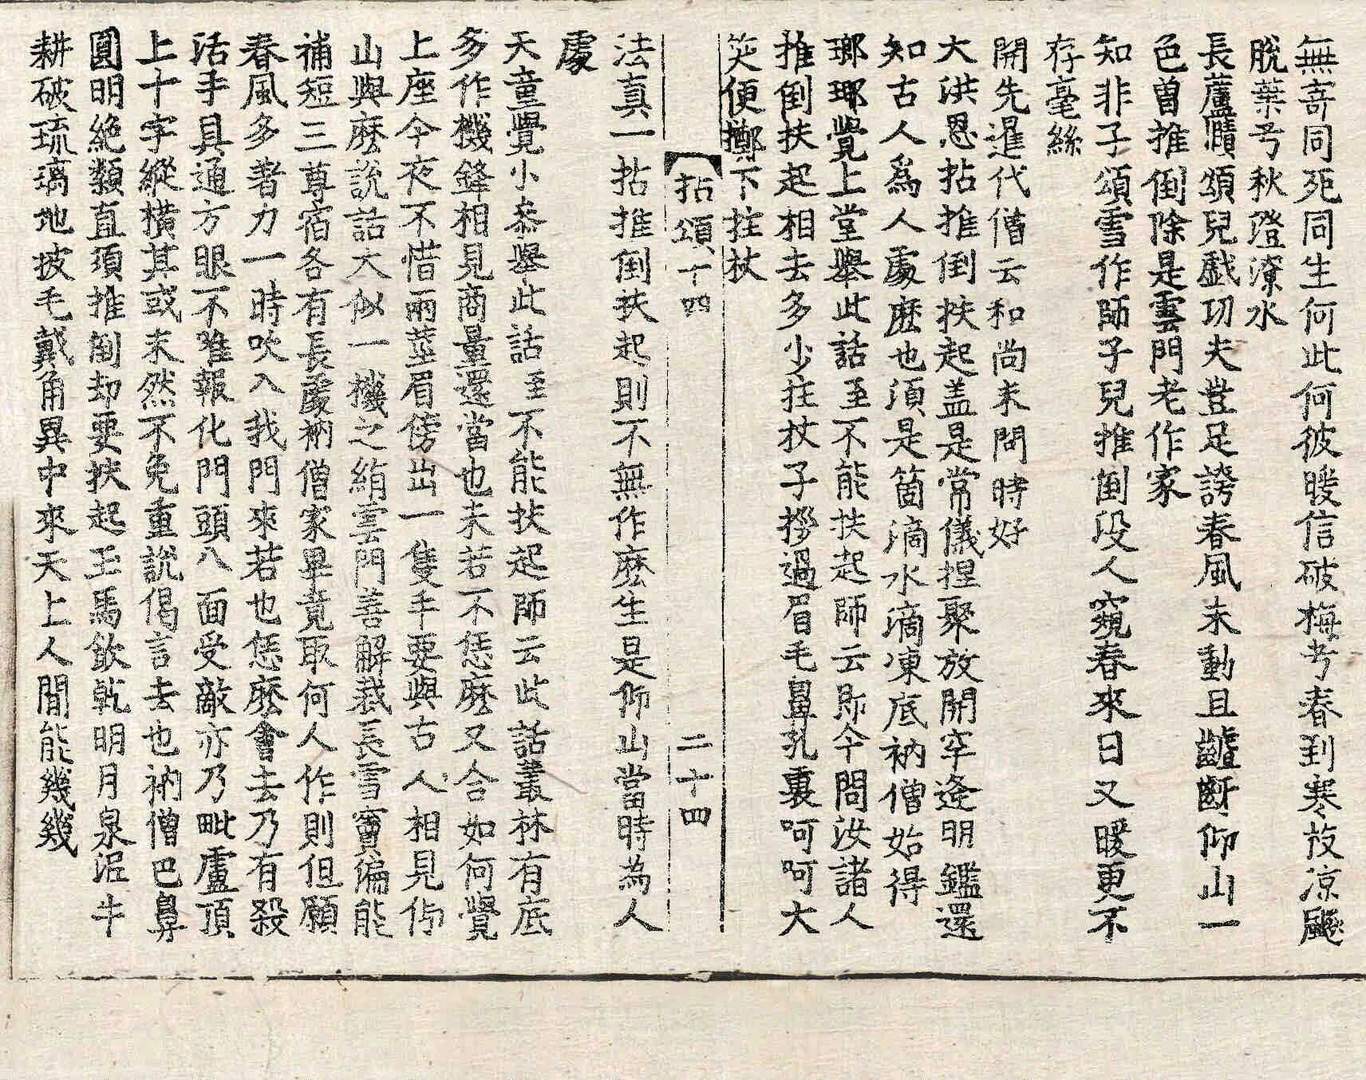 無竒同死同生何此何彼暖信破梅兮春到寒故凉飈
脫葉兮秋澄潦水
長蘆賾頌兒戱功夫豈足誇春風未動且齇齖仰山一
色曽推倒除是雲門老作家
知非子頌雪作師子兒推倒叚人窺春來日又暖更不
存毫絲
開先暹代僧云和尚未問時好
大洪恩拈推倒扶起盖是常儀捏聚放開罕逢明鑑還
知古人爲人處麽也須是箇滴水滴凍底衲僧始得
瑯瑘覺上堂舉此話至不能扶起師云即今問汝諸人
推倒扶起相去多少拄杖子拶過眉毛鼻孔裏呵呵大
笑便擲下拄杖
拈頌十四 二十四
法真一拈推倒扶起則不無作麽生是仰山當時為人
處
天童覺小叅舉此話至不能扶起師云此話叢林有底
多作機鋒相見商量還當也未若不恁麽又合如何覺
上座今夜不惜兩莖眉傍出一隻手要與古人相見仰
山與麽說話大似一機之絹雲門善解裁長雪竇偏能
補短三尊宿各有長處衲僧家畢竟取何人作則但願
春風多著力一時吹入我門來若也恁麽會去乃有殺
活手具通方眼不唯報化門頭八面受敵亦乃毗盧頂
上十字縱橫其或未然不免重說偈言去也衲僧巴鼻
圓明絶類直須推倒却要扶起玉馬飲乾明月泉泥牛
耕破琉璃地披毛戴角異中來天上人間能幾幾